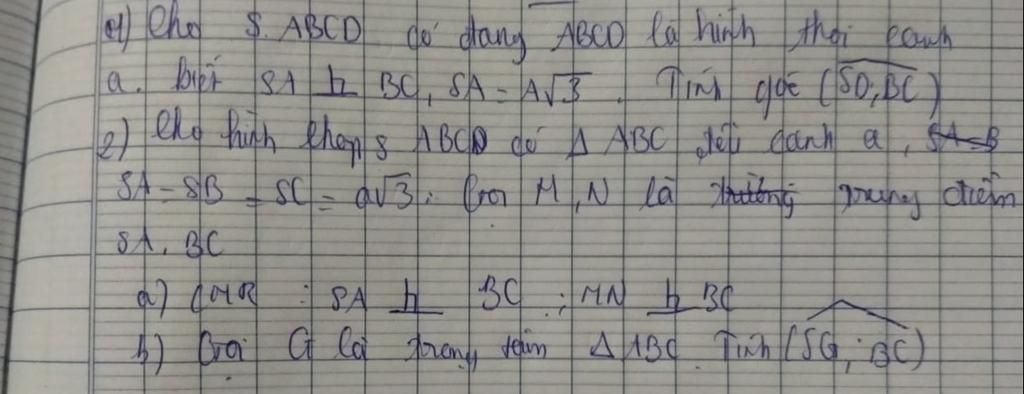 1) Cho S.ABCD có đáng ABCD là hình thoi cạnh
a. biết SA ⊥ BC, SA = A√3. Tính góc (SD,BC)
2) Cho hình chóp S ABCD có Δ ABC đều cạnh a, SA=B
SA = SB = SC = a√3. Gọi M, N là trung điểm
SA, BC
a) CMR : SA ⊥ BC ; MN ⊥ BC
b) Gọi G là trọng tâm Δ ABC Tính (SG; BC)